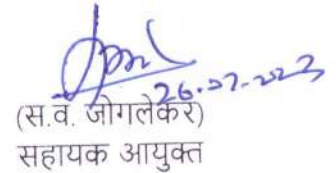 26.07-2023
(स.व. जोगलेकर)
सहायक आयुक्त